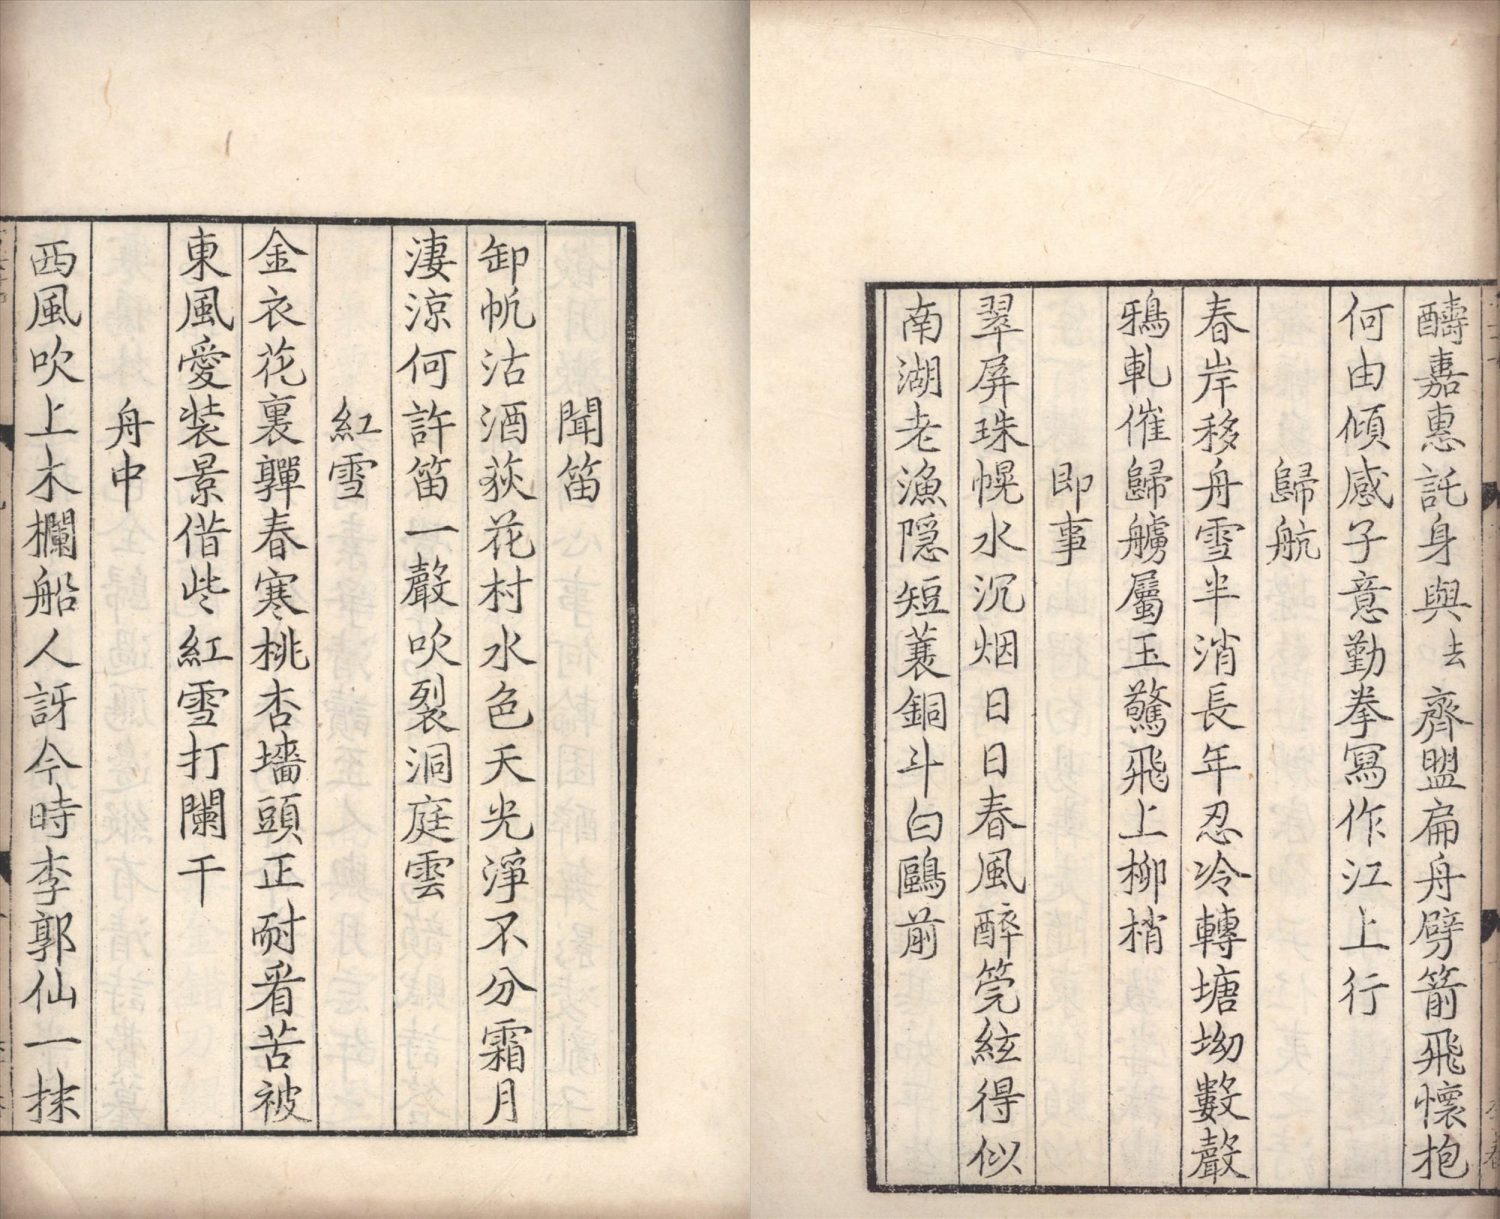 醻嘉惠託身與去齊盟扁舟劈箭飛懷抱
何由傾感子意勤拳寫作江上行
歸航
春岸移舟雪半消長年忍冷轉塘坳數聲
鴉軋催歸艣屬玉驚飛上柳梢
即事
翠屏珠幌水沉烟日日春風醉筦絃得似
南湖老漁隱短蓑銅斗白鷗前
聞笛
卸帆沽酒荻花村水色天光淨不分霜月
淒涼何許笛一聲吹裂洞庭雲
紅雪
金衣花裏嚲春寒桃杏墻頭正耐看苦被
東風愛裝景借些紅雪打闌干
舟中
西風吹上木欄船人訝今時李郭仙一抹